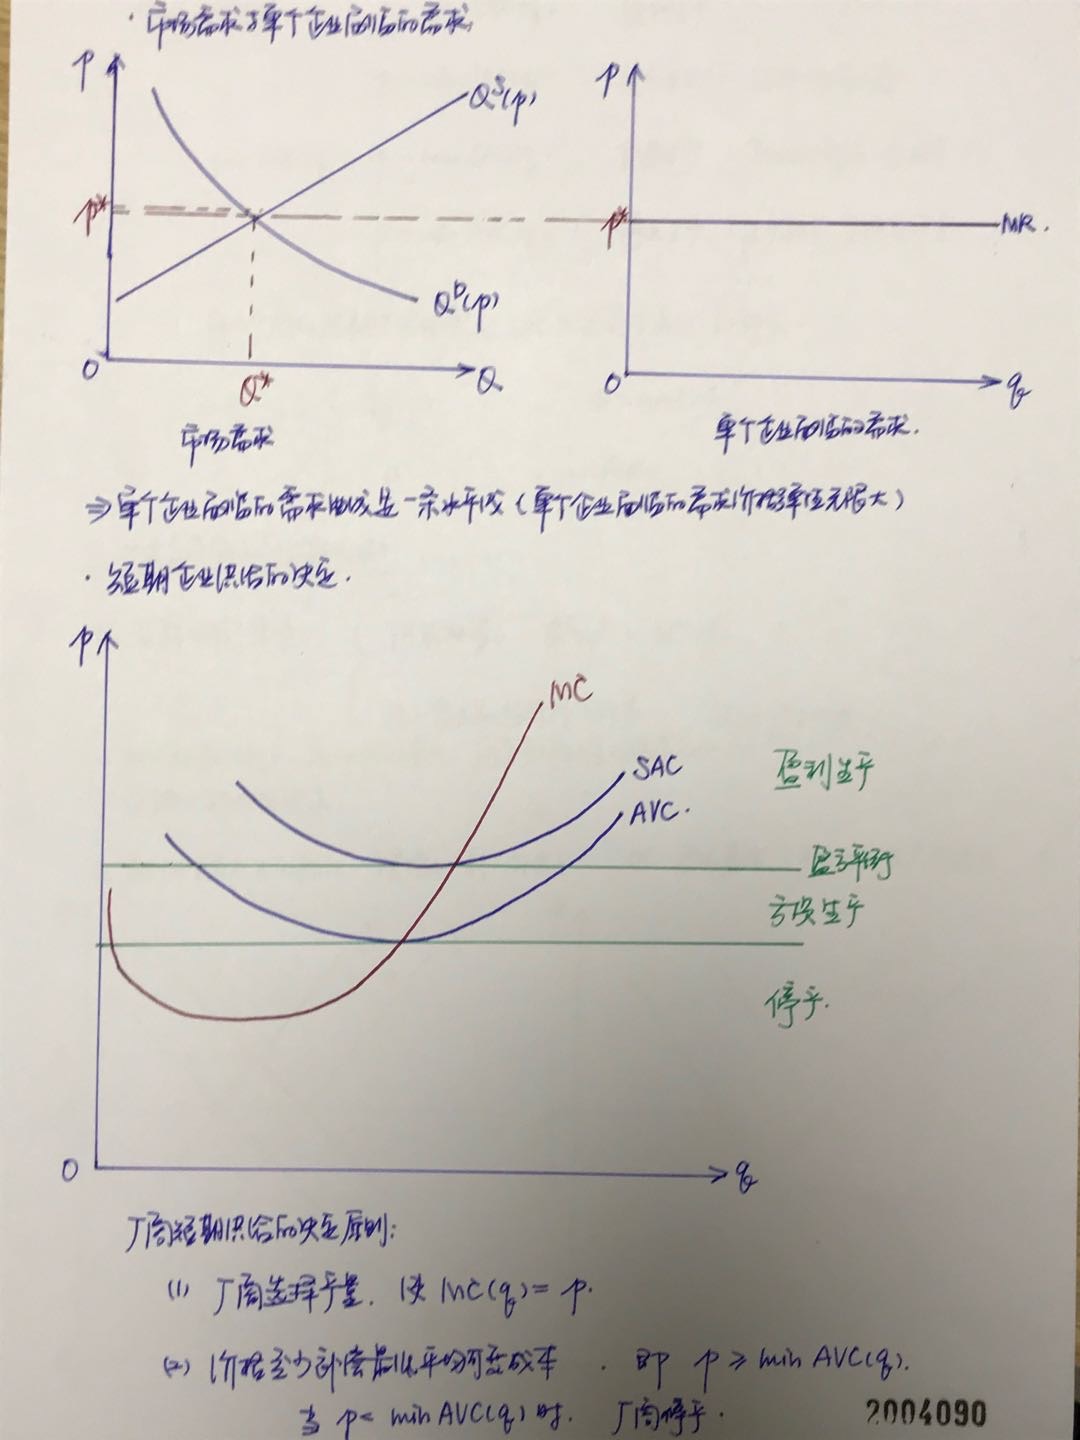 · 市场需求与单个企业面临的需求
P
Q^S(p)
P
p*
p*
MR.
Q^D(p)
0
Q*
Q
0
q
市场需求
单个企业面临的需求.
⇒ 单个企业面临的需求曲线是一条水平线(单个企业面临的需求价格弹性无限大)
· 短期企业供给的决定.
P
MC
SAC
盈利生产
AVC.
盈亏平衡
亏损生产
停产.
0
q
厂商短期供给的决定原则:
(1) 厂商选择产量, 使 MC(q)= p.
(2) 价格至少补偿最低平均可变成本. 即 p ≥ min AVC(q).
当 p< min AVC(q) 时. 厂商停产.
2004090